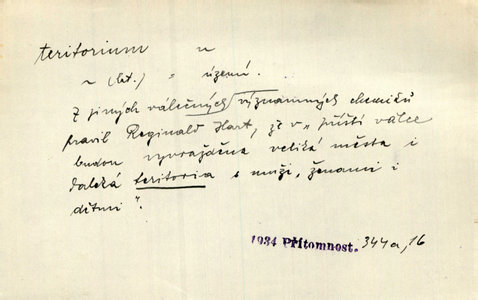 teritorium n
~ (lat.) = území.
Z jiných válečných významných chemiků
pravil Reginald Hart, že v „příští válce
budou vyvražděna veliká města i
daleká teritoria s muži, ženami i
dětmi".
1934 Přítomnost. 344a, 16